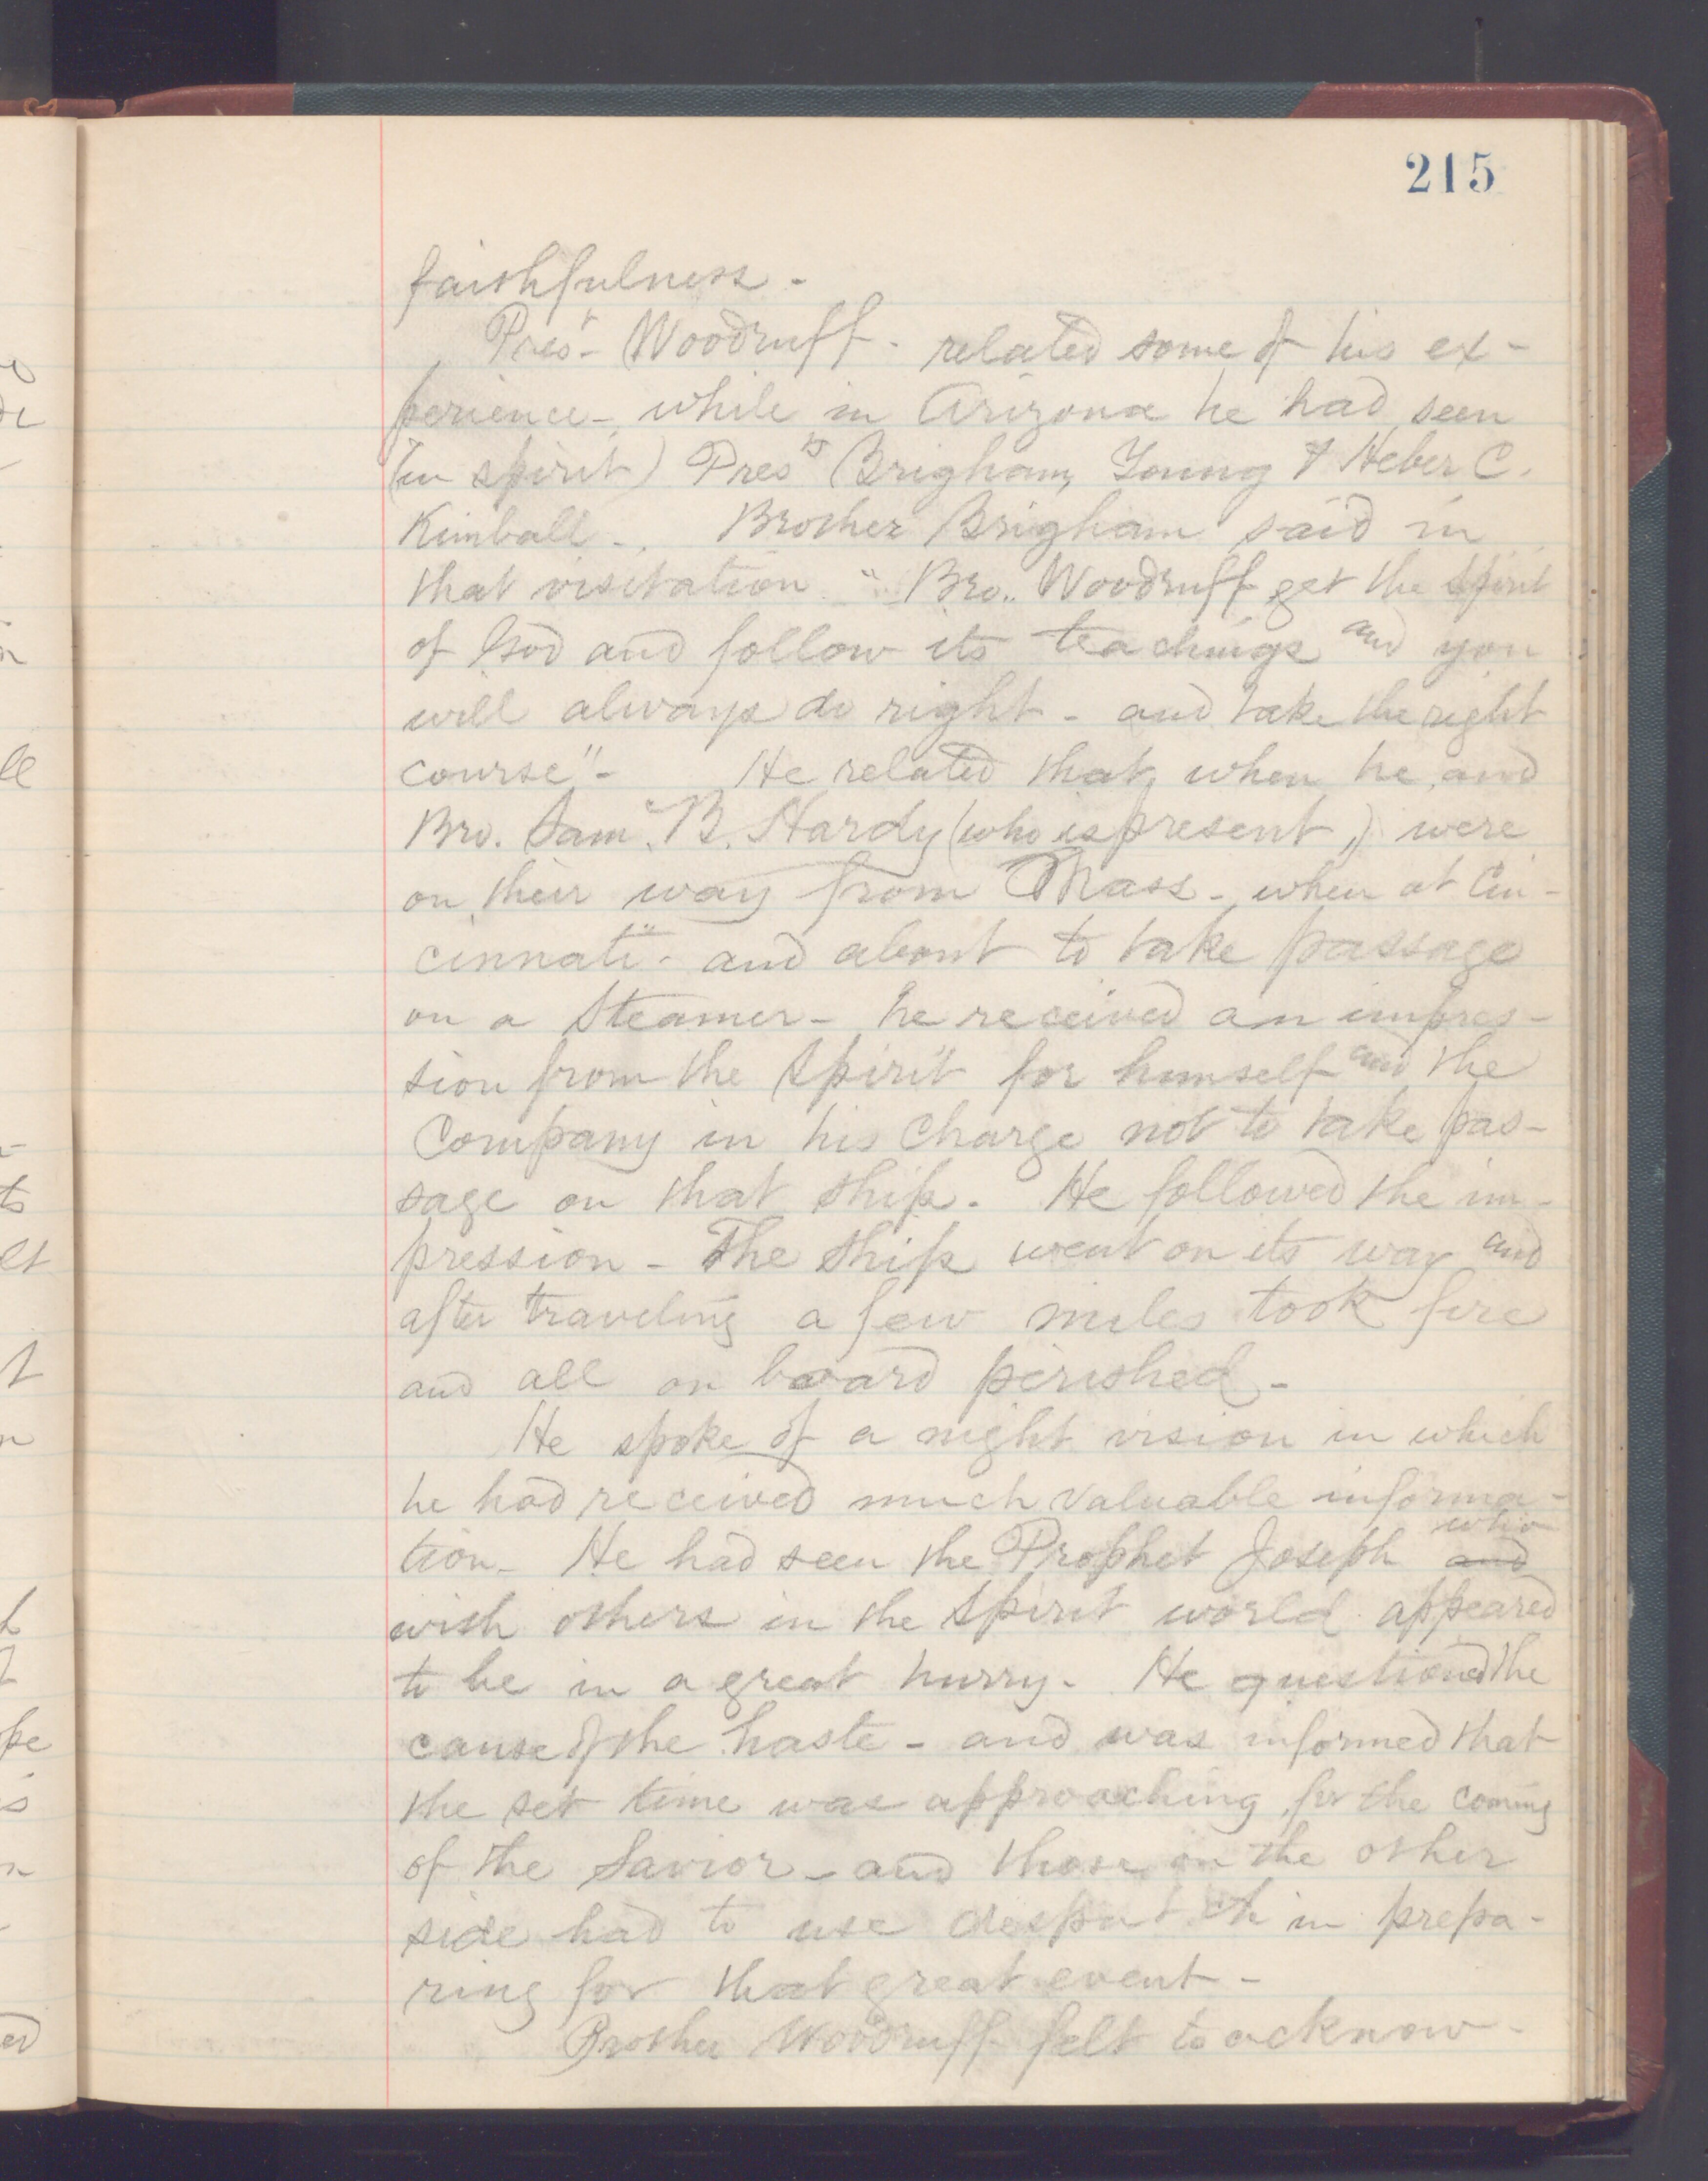 215
faithfulness -
Pres't- Woodruff - related some of his ex-
perience - while in Arizona he had seen
(in spirit) Pres'ts Brigham Young & Heber C.
Kimball -. Brother Brigham said in
that visitation - "Bro. Woodruff get the Spirit
of God and follow its teachings and you
will always do right - and take the right
course" - He related that, when he and
Bro. Sam'l. B. Hardy (who is present,) were
on their way from Mass - when at Cin-
cinnati - and about to take passage
on a Steamer - he received an impres-
sion from the Spirit for himself and the
Company in his Charge not to take pas-
sage on that Ship. He followed the im-
pression - The Ship went on its way and
after traveling a few miles took fire
and all on board perished -
He spoke of a night vision in which
he had received much valuable informa-
tion - He had seen the Prophet Joseph and who
with others in the Spirit world appeared
to be in a great hurry - He questioned the
cause of the haste - and was informed that
the set time was approaching for the coming
of the Savior - and those on the other
side had to use despatch in prepa-
ring for that great event -
Brother Woodruff felt to acknow-